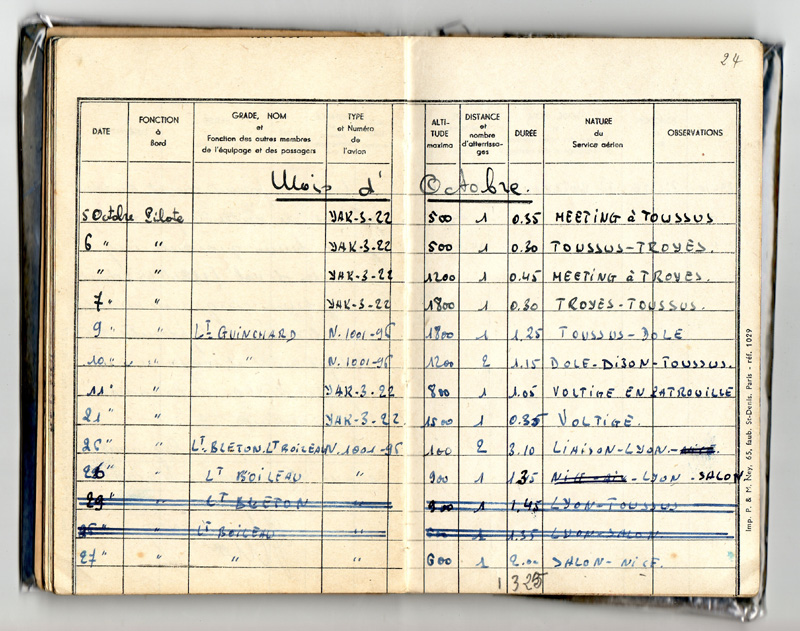 24
DATE FONCTION à Bord GRADE, NOM et Fonction des autres membres de l'équipage et des passagers TYPE et Numéro de l'avion ALTI-TUDE maxima DISTANCE et nombre d'atterrissa-ges DURÉE NATURE du Service aérien OBSERVATIONS
Mois d'Octobre.
5 Octobre Pilote YAK-3-22 500 1 0.35 MEETING à TOUSSUS
6 " " YAK-3-22 500 1 0.30 TOUSSUS-TROYES.
" " YAK-3-22 1200 1 0.45 MEETING à TROYES.
7 " " YAK-3-22 1800 1 0.30 TROYES-TOUSSUS.
9 " " LT GUINCHARD N.1001-96 1800 1 1.25 TOUSSUS-DOLE
10 " " " N.1001-96 1200 2 1.15 DOLE-DIJON-TOUSSUS.
11 " " YAK-3-22 800 1 1.05 VOLTIGE EN PATROUILLE
21 " " YAK-3-22 1500 1 0.35 VOLTIGE.
26 " " LT BLETON. LT BOILEAU N.1001-96 100 2 3.10 LIAISON-LYON-NICE.
26 " " LT BOILEAU " 900 1 1.35 -LYON-SALON
29 " " LT BLETON " 900 1 1.45 LYON-TOUSSUS
" " LT BOILEAU " 1 1.35 LYON-SALON
27 " " " " 600 1 2.00 SALON-NICE.
1325
Imp. P. & M. Ney, 65, faub. St-Denis, Paris - réf. 1029